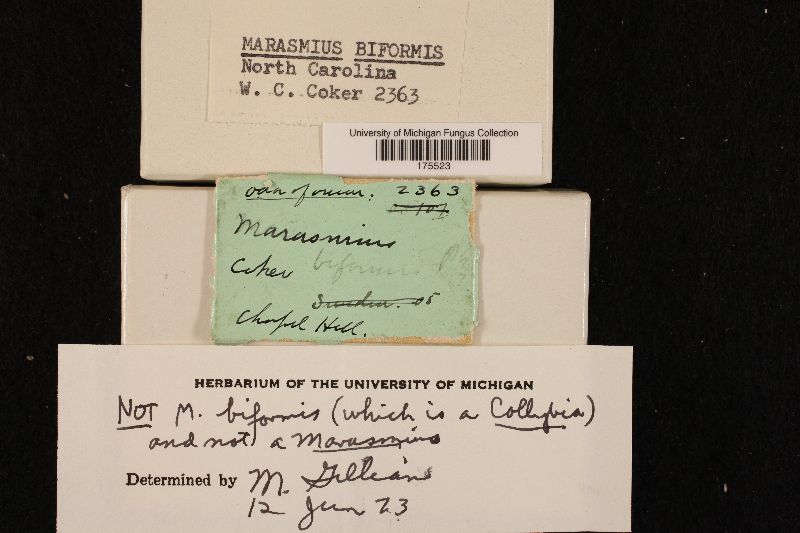 MARASMIUS BIFORMIS
North Carolina
W. C. Coker 2363
University of Michigan Fungus Collection
175523
odor of onion. 2363
Marasmius
Coker biformis
Sweden. 05
Chapel Hill.
HERBARIUM OF THE UNIVERSITY OF MICHIGAN
NOT M. biformis (which is a Collybia)
and not a Marasmius
Determined by M. Gilliam
12 Jun 73